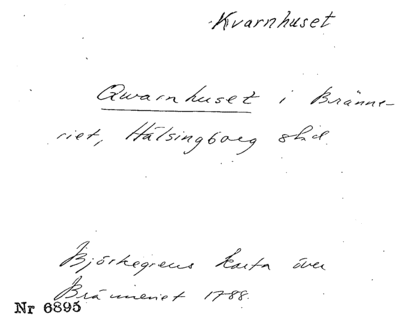 Kvarnhuset
Qwarnhuset i Bränne-
riet, Hälsingborg stad.
Björkegrens karta över
Bränneriet 1788.
Nr 6895